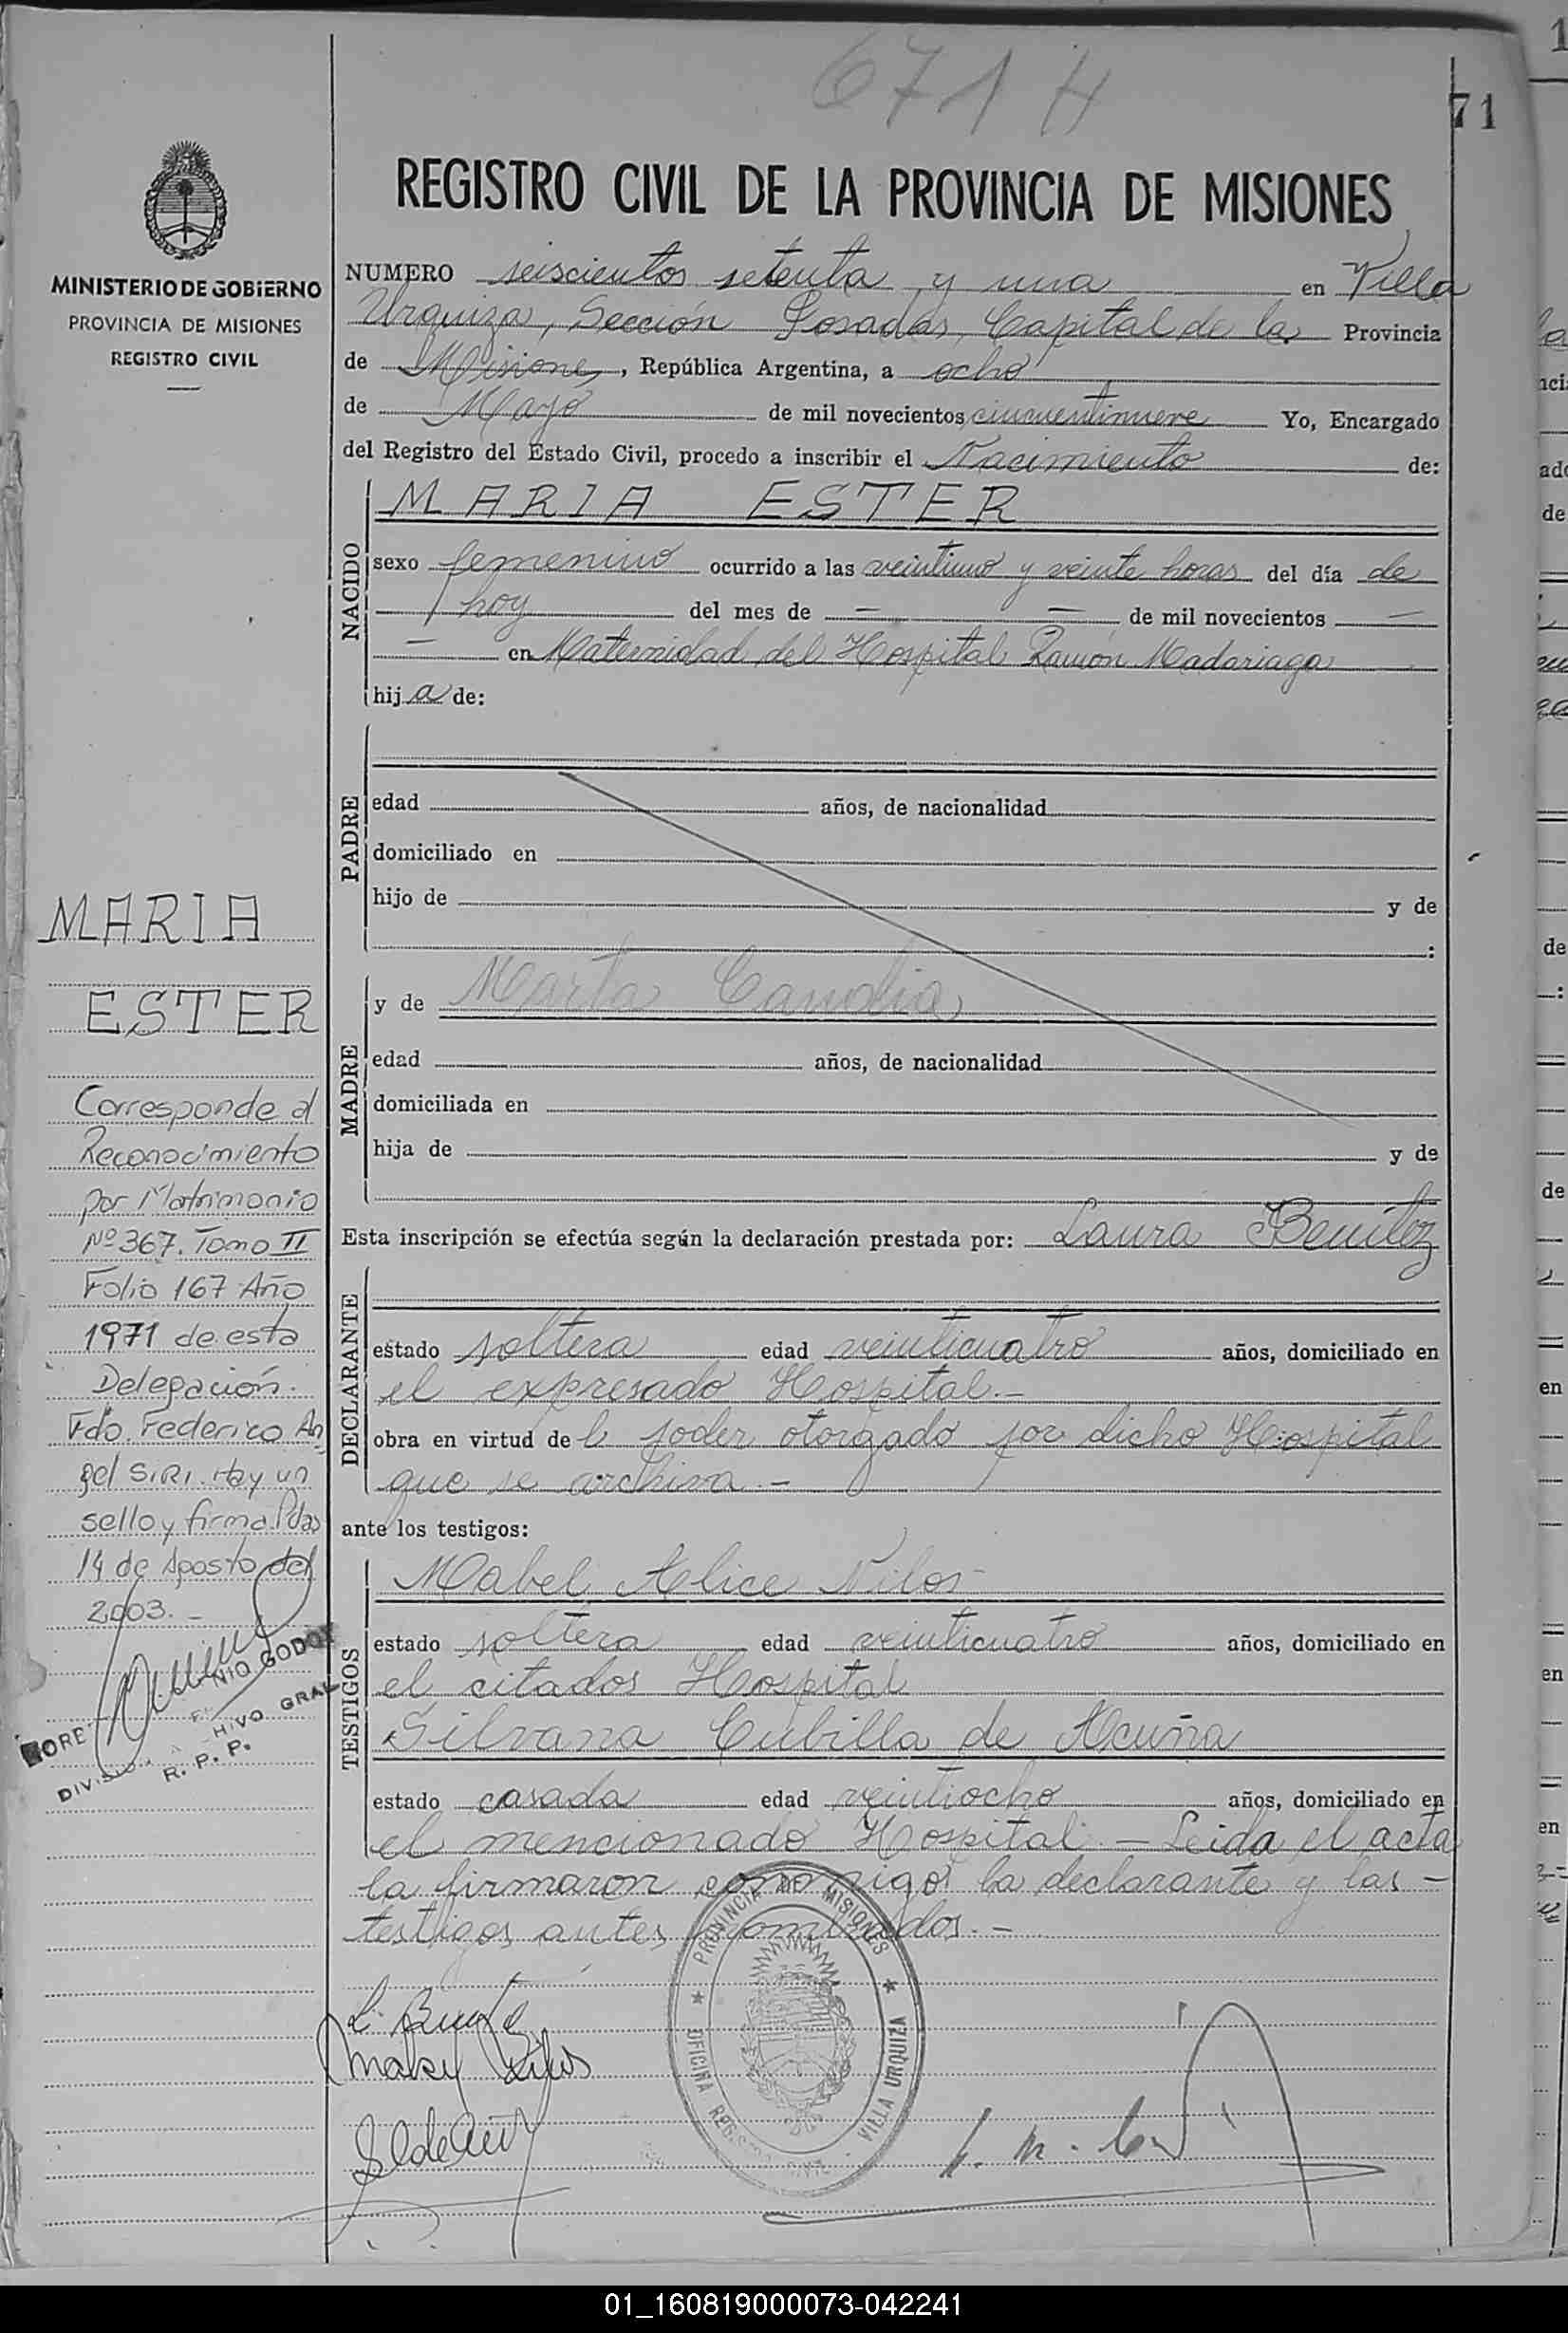 671 H
71
REGISTRO CIVIL DE LA PROVINCIA DE MISIONES
MINISTERIO DE GOBIERNO
PROVINCIA DE MISIONES
REGISTRO CIVIL
NUMERO seiscientos setenta y una en Villa
Urquiza, Sección Posadas, Capital de la Provincia
de Misiones, República Argentina, a ocho
de Mayo de mil novecientos cincuentinueve Yo, Encargado
del Registro del Estado Civil, procedo a inscribir el Nacimiento de:
NACIDO
MARIA ESTER
sexo femenino ocurrido a las veintiuno y veinte horas del día de
hoy del mes de — — de mil novecientos —
— en Maternidad del Hospital Ramón Madariaga
hij a de:
PADRE
edad años, de nacionalidad
domiciliado en
hijo de y de
:
MADRE
y de Marta Candia
edad años, de nacionalidad
domiciliada en
hija de y de
Esta inscripción se efectúa según la declaración prestada por: Laura Benítez
DECLARANTE
estado soltera edad veinticuatro años, domiciliado en
el expresado Hospital.-
obra en virtud de l poder otorgado por dicho Hospital
que se archiva.-
ante los testigos:
TESTIGOS
Mabel Alice Nilos
estado soltera edad veinticuatro años, domiciliado en
el citados Hospital
Silvana Cubilla de Acuña
estado casada edad veintiocho años, domiciliado en
el mencionado Hospital.- Leida el acta
la firmaron conmigo la declarante y las -
testigos antes nombrados.-
MARIA
ESTER
Corresponde al
Reconocimiento
por Matrimonio
Nº 367. Tomo II
Folio 167 Año
1971 de esta
Delegación.
Fdo. Federico An
gel SIRI. Hay un
sello y firma. Pdas
14 de Agosto del
2003.-
NIO GODOY
HIVO GRAL
R. P. P.
PROVINCIA DE MISIONES
OFICINA REGISTRO CIVIL
VILLA URQUIZA
01_160819000073-042241